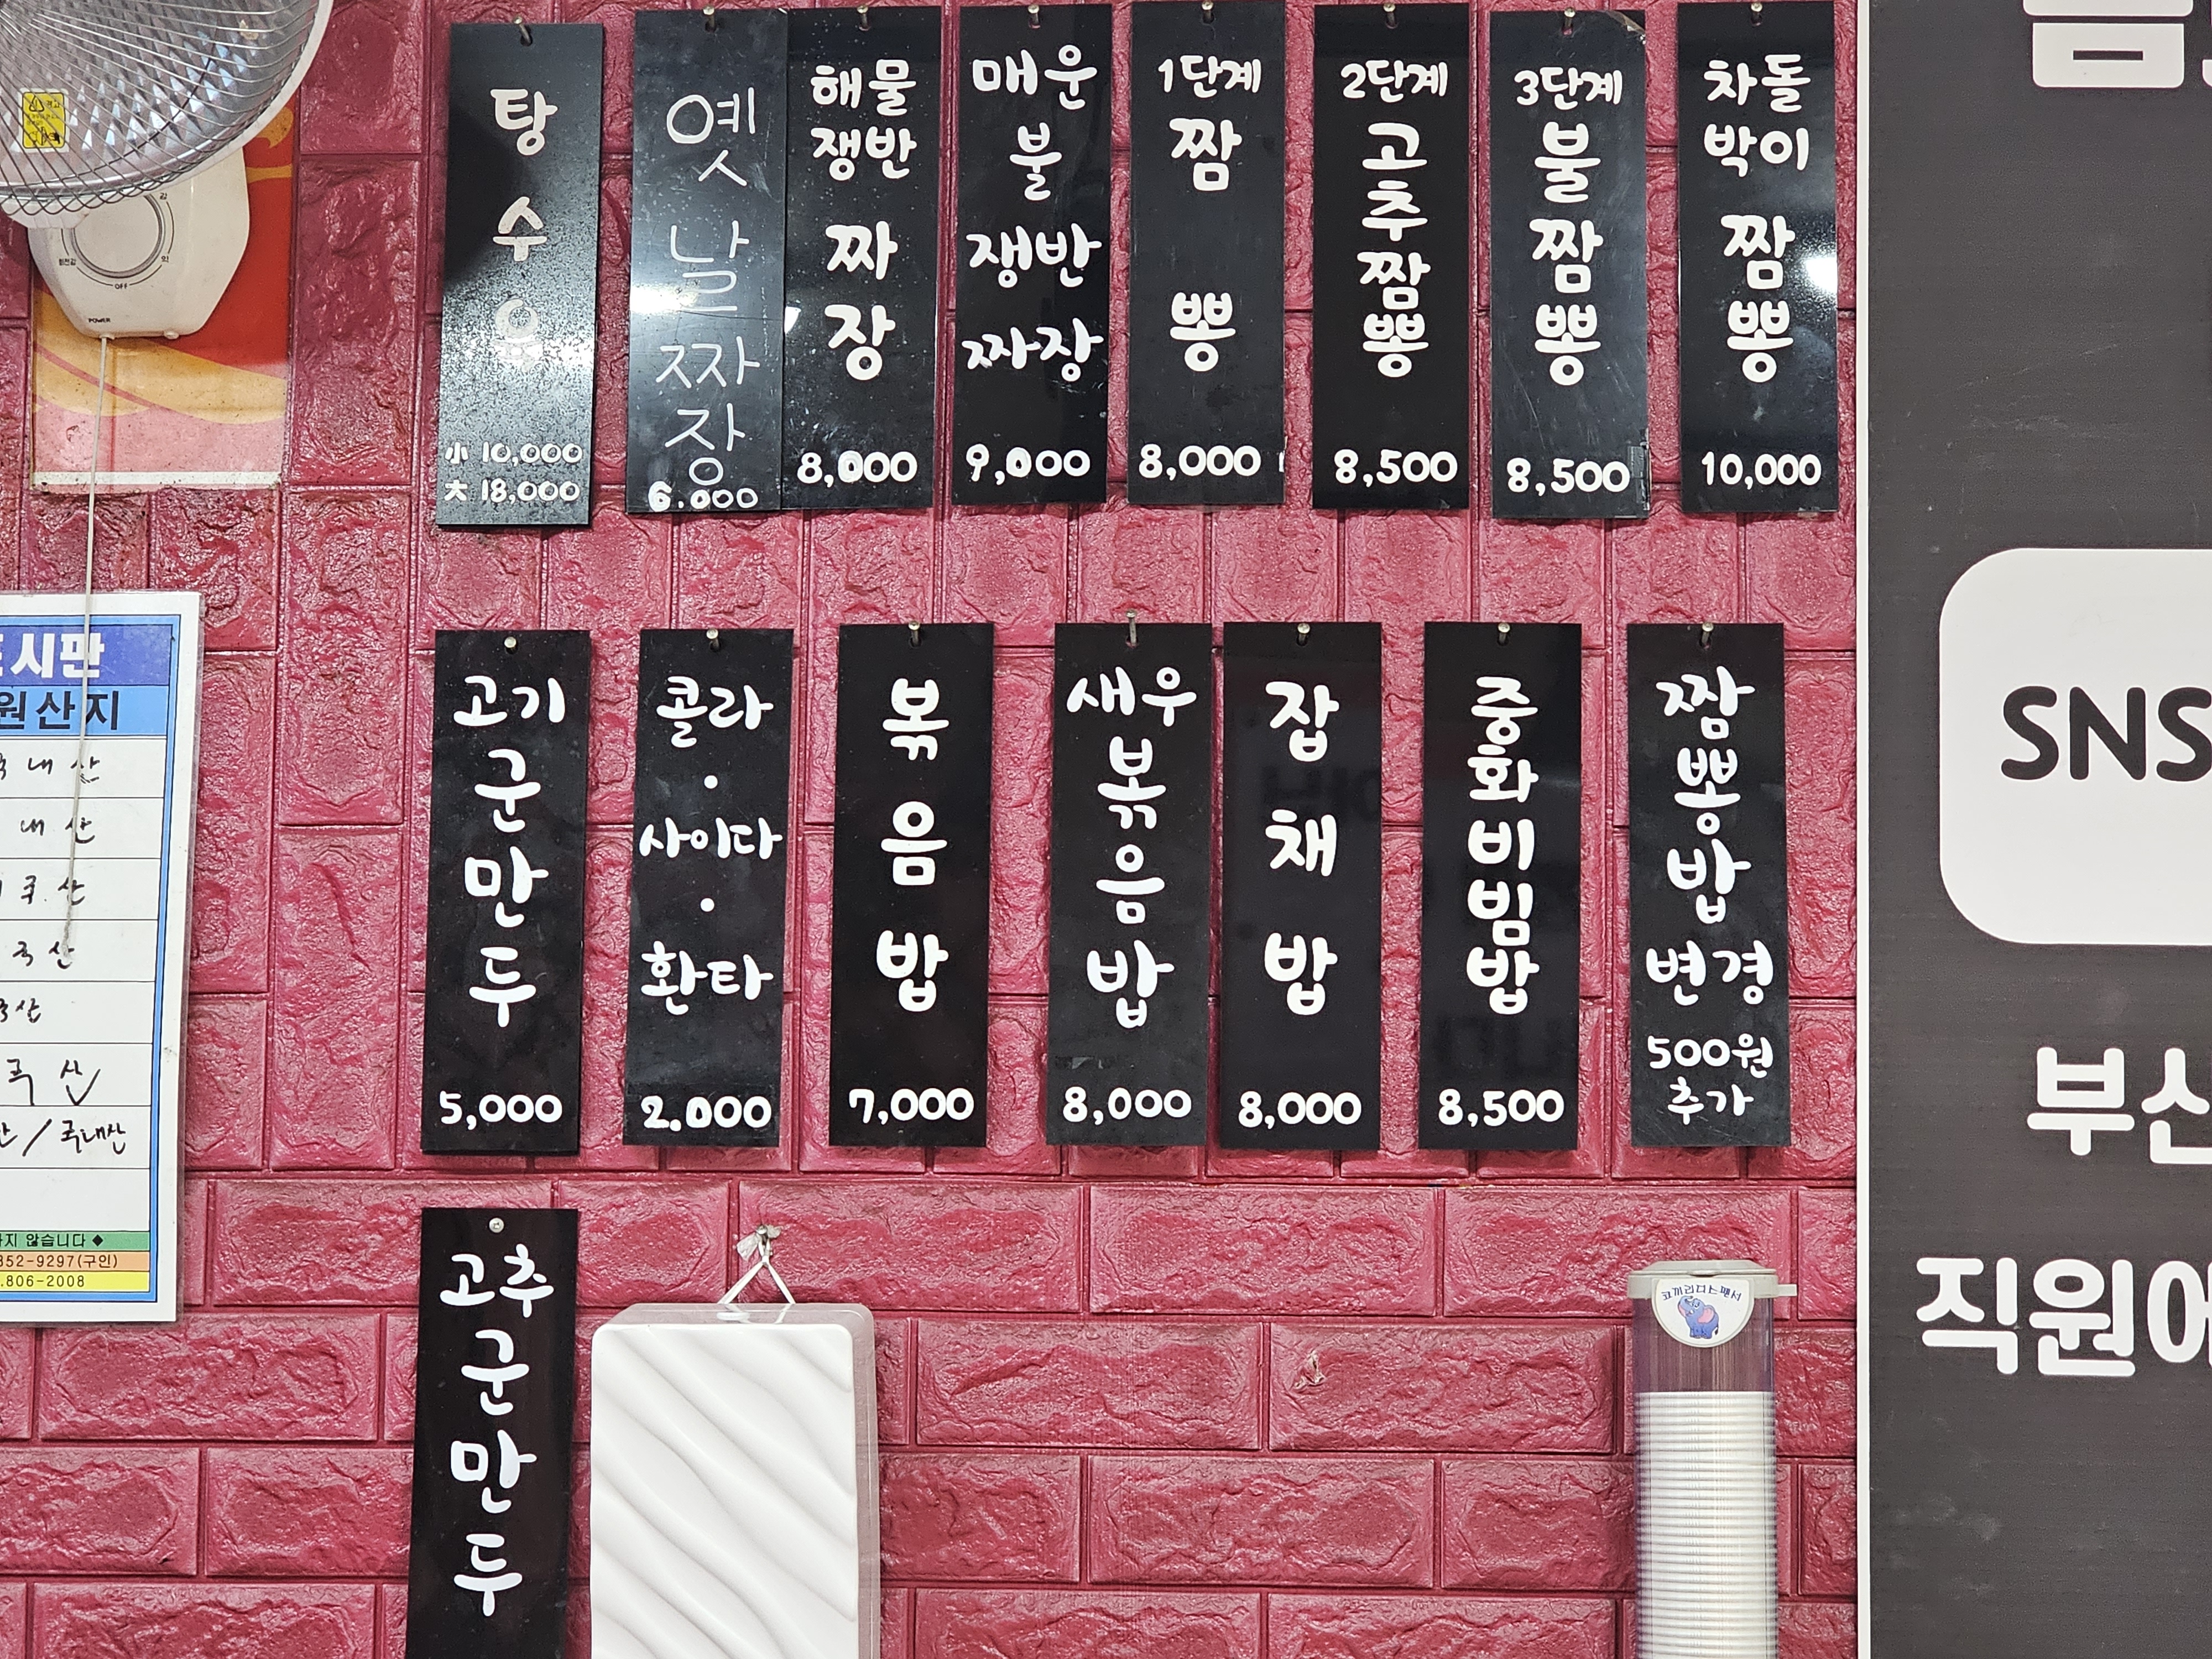 탕
수
육
小 10,000
大 18,000
옛
날
짜
장
6.000
해물
쟁반
짜
장
8,000
매운
불
쟁반
짜장
9,000
1단계
짬
뽕
8,000
2단계
고
추
짬
뽕
8,500
3단계
불
짬
뽕
8,500
차돌
박이
짬
뽕
10,000
고기
군
만
두
5,000
콜라
·
사이다
·
환타
2.000
볶
음
밥
7,000
새우
볶
음
밥
8,000
잡
채
밥
8,000
중
화
비
빔
밥
8,500
짬
뽕
밥
변경
500원
추가
고추
군
만
두
시판
원산지
내산
내산
국산
산
국산/국내산
지 않습니다 ◆
352-9297(구인)
.806-2008
OFF
POWER
SNS
부산
직원에